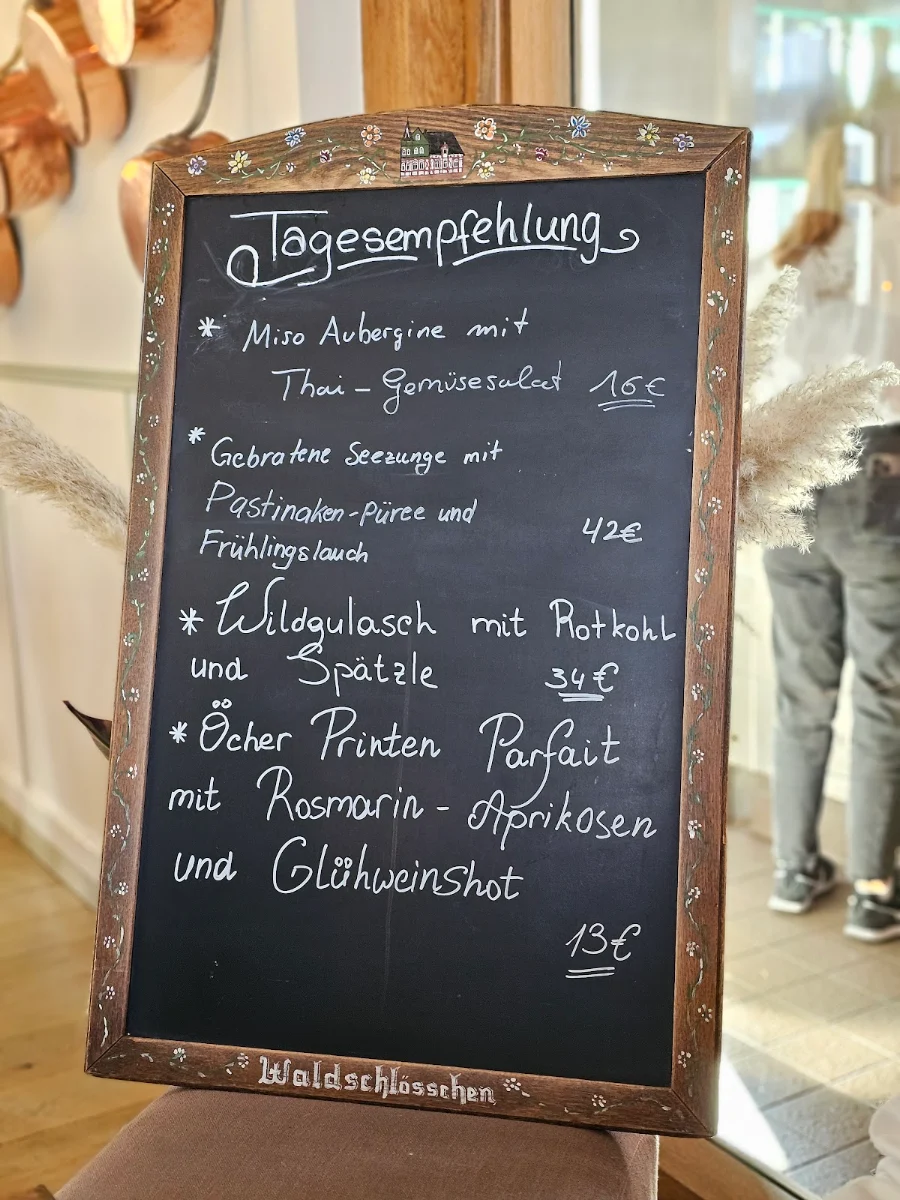 Tagesempfehlung
* Miso Aubergine mit
Thai - Gemüsesalat 16€
* Gebratene Seezunge mit
Pastinaken-Püree und
Frühlingslauch 42€
* Wildgulasch mit Rotkohl
und Spätzle 34€
* Öcher Printen Parfait
mit Rosmarin - Aprikosen
und Glühweinshot
13€
Waldschlösschen